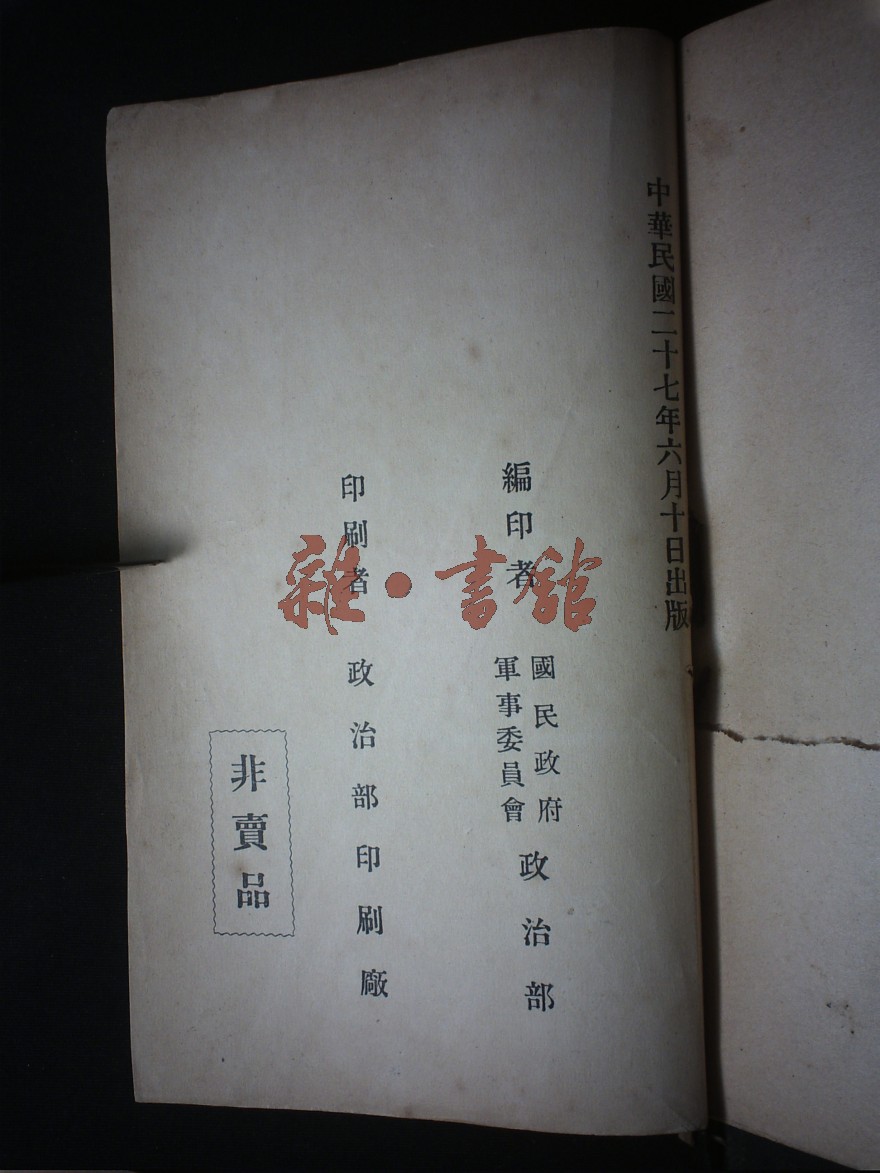 中華民國二十七年六月十日出版
編印者
國民政府
軍事委員會
政治部
印刷者 政治部印刷廠
非賣品
雜·書館